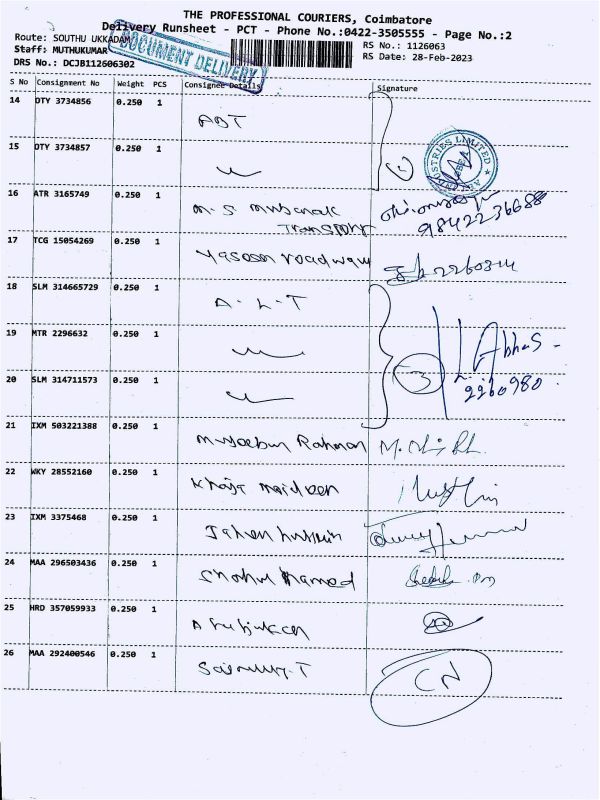 THE PROFESSIONAL COURIERS, Coimbatore
Delivery Runsheet - PCT - Phone No.:0422-3505555 - Page No.:2
Route: SOUTHU UKKADAM
RS No.: 1126063
Staff: MUTHUKUMAR
RS Date: 28-Feb-2023
DOCUMENT DELIVERY
DRS No.: DCJB112606302
S No Consignment No Weight PCS Consignee Details Signature
14 DTY 3734856 0.250 1 ADT
15 DTY 3734857 0.250 1
INDUSTRIES LIMITED
16 ATR 3165749 0.250 1 M.S. Mubarak Transport
9842236688
17 TCG 15054269 0.250 1 roadway
18 SLM 314665729 0.250 1 A.L.T
19 MTR 2296632 0.250 1
20 SLM 314711573 0.250 1 3 Abbas
2260980
21 IXM 503221388 0.250 1 Rahman
22 WKY 28552160 0.250 1 Khaja maideen
23 IXM 3375468 0.250 1 hussain
24 MAA 296503436 0.250 1 Shahul Hameed
25 HRD 357059933 0.250 1
26 MAA 292400546 0.250 1 CN